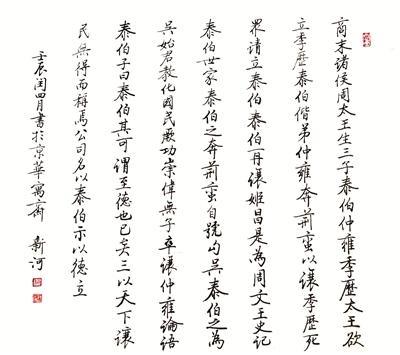 商末諸侯周太王生三子泰伯仲雍季歷太王欲
立季歷泰伯偕弟仲雍奔荊蠻以讓季歷死
眾請立泰伯泰伯再讓姬昌是為周文王史記
泰伯世家泰伯之奔荊蠻自號句吳泰伯之為
吳始君教化國民厥功崇偉無子卒讓仲雍論語
泰伯子曰泰伯其可謂至德也已矣三以天下讓
民無得而稱焉公司名以泰伯示以德立
壬辰閏四月書於京華寓齋 新河